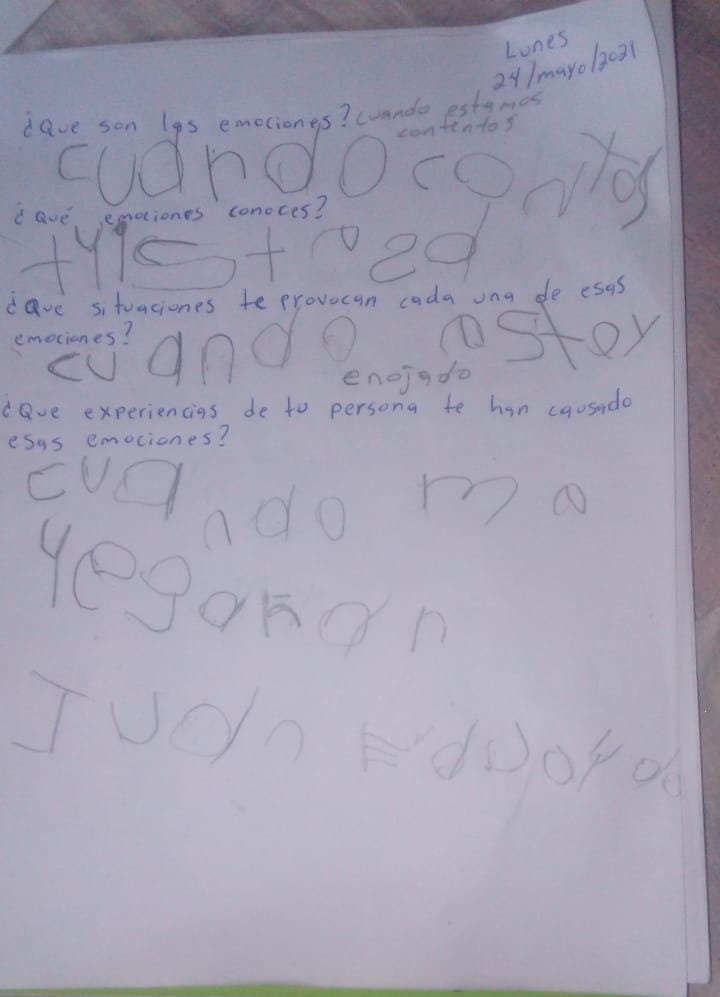 Lunes
24/mayo/2021
¿Que son las emociones? cuando estamos
contentos
cuando contos
¿Qué emociones conoces?
¿Que situaciones te provocan cada una de esas
emociones?
cuando estoy
enojado
¿Que experiencias de tu persona te han causado
esas emociones?
cuando me
Juan Eduardo